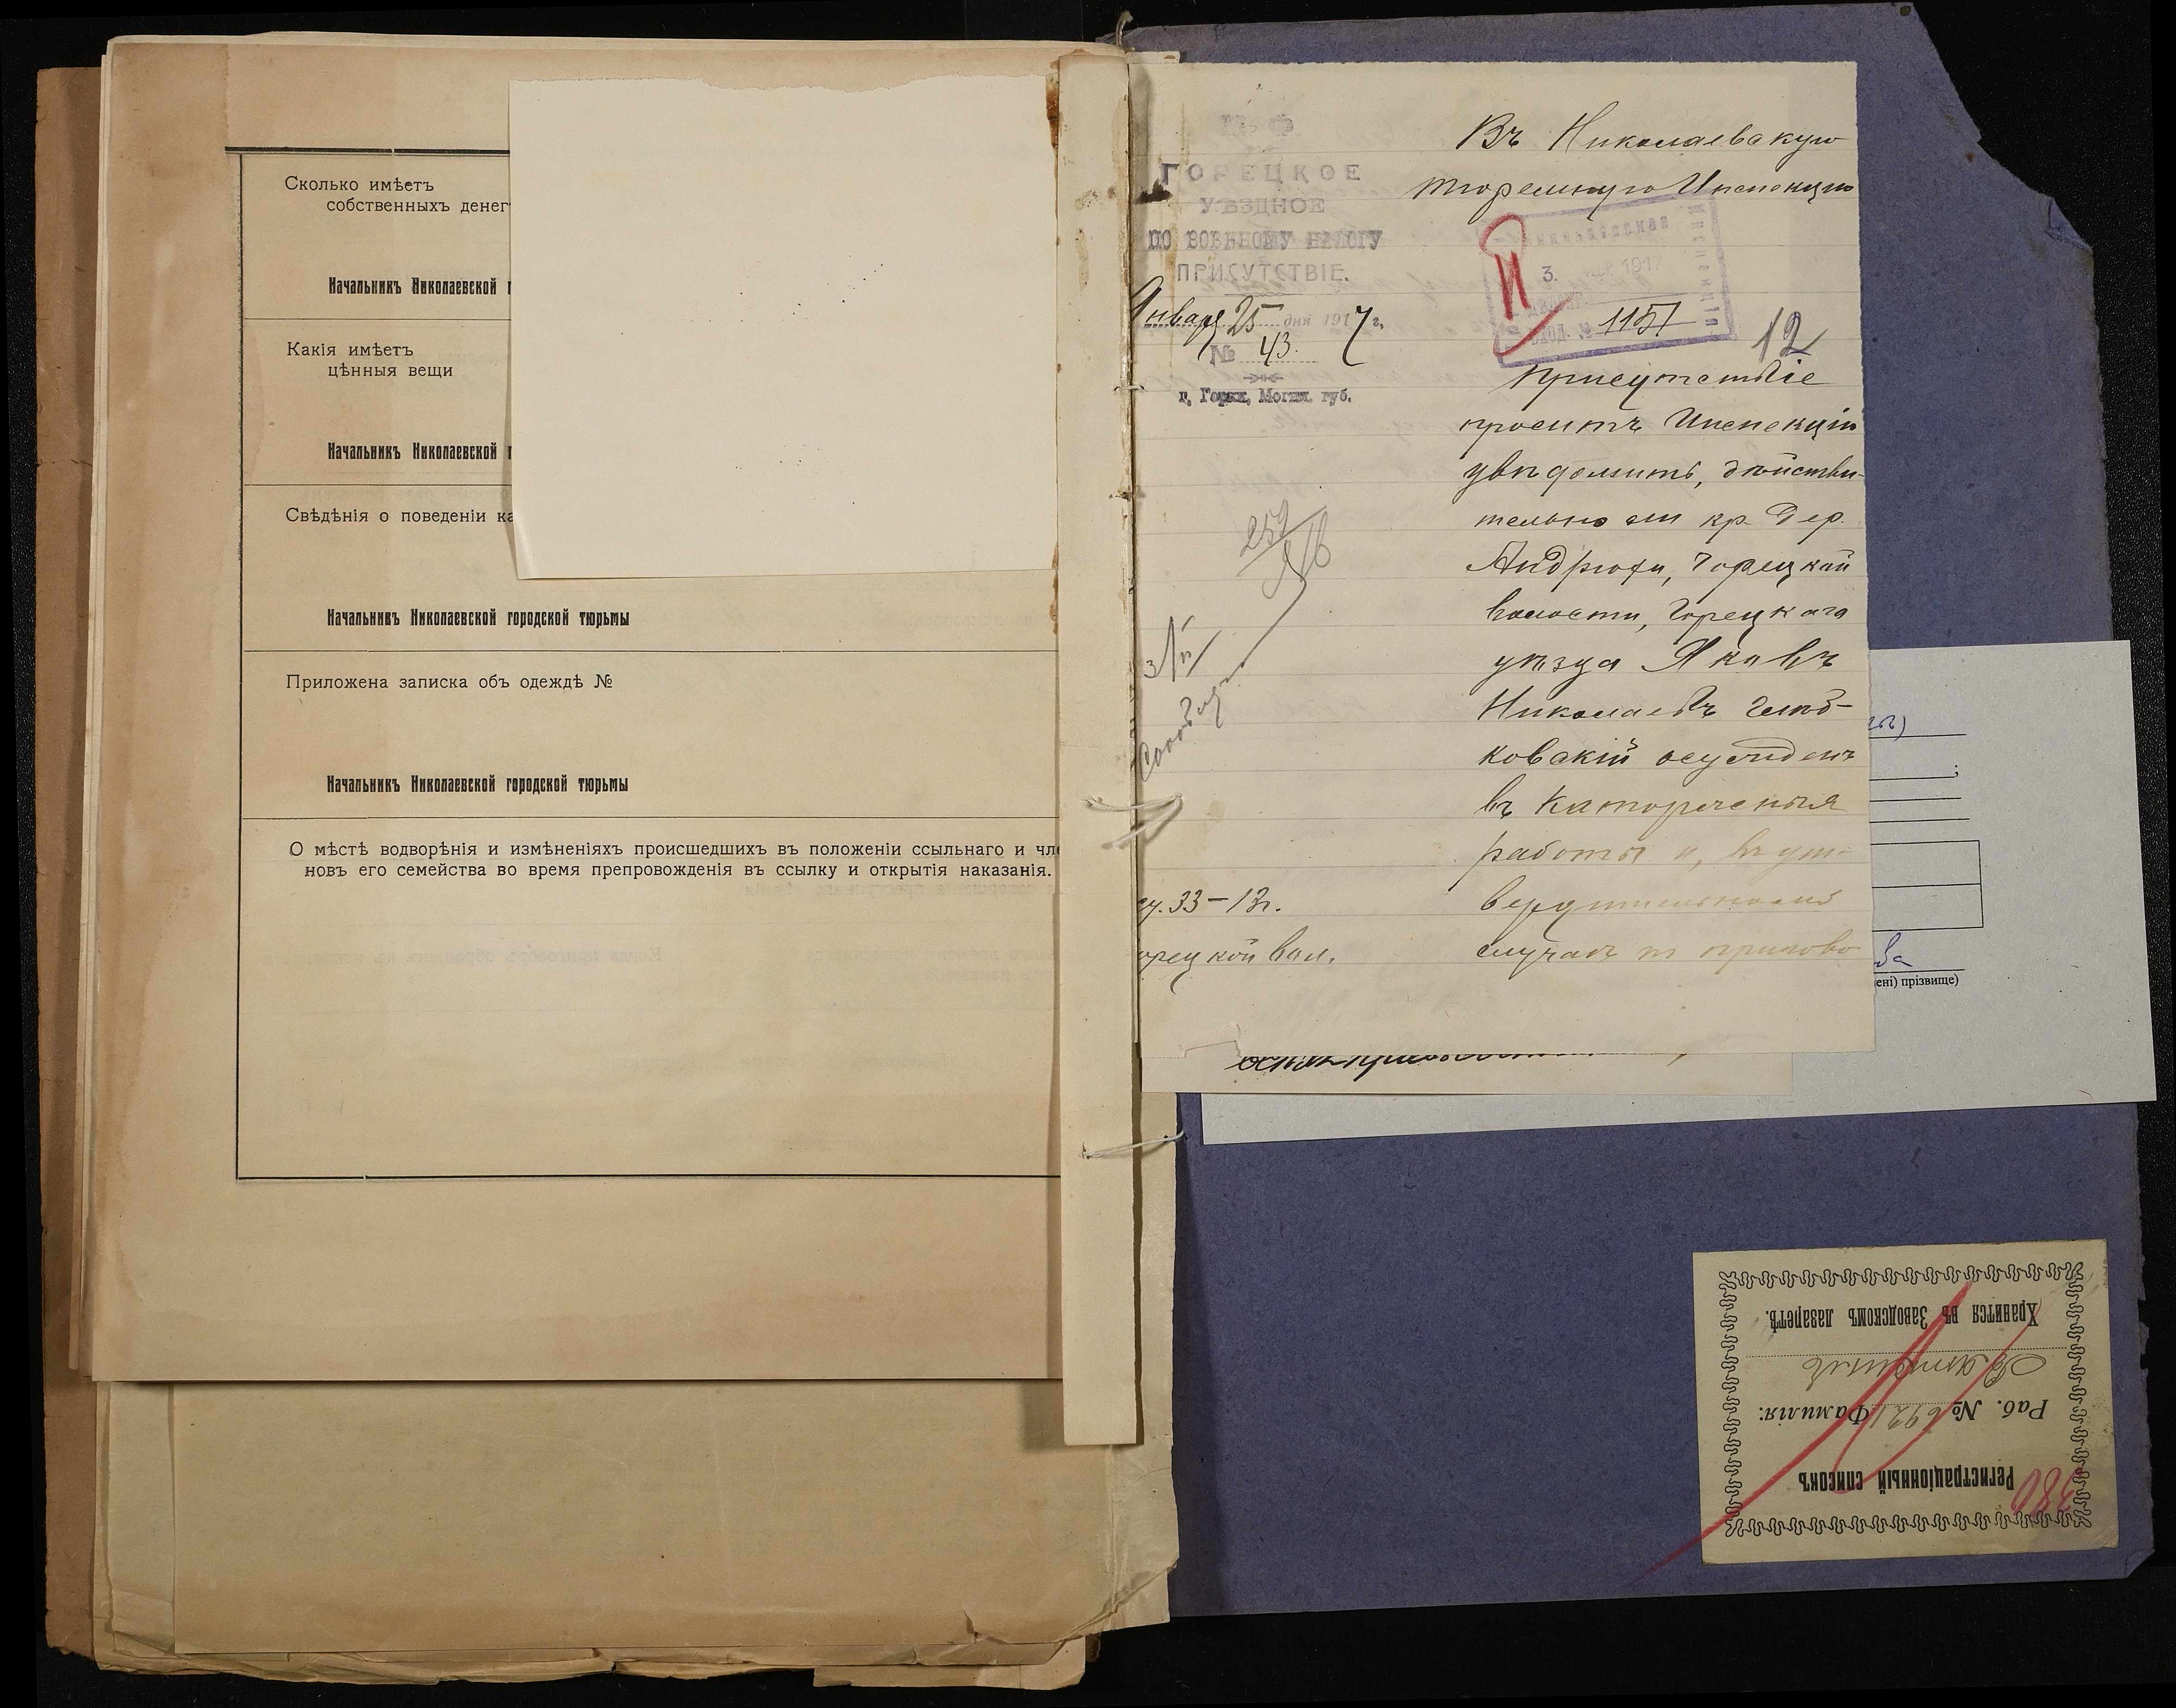 Сколько имѣетъ
собственныхъ денег
Начальникъ Николаевской
Какія имѣетъ
цѣнныя вещи
Начальникъ Николаевской
Свѣдѣнія о поведеніи ка
Начальникъ Николаевской городской тюрьмы
Приложена записка объ одеждѣ №
Начальникъ Николаевской городской тюрьмы
О мѣстѣ водворѣнія и измѣненіяхъ происшедшихъ въ положеніи ссыльнаго и чле
новъ его семейства во время препровожденія въ ссылку и открытія наказанія.
ГОРЕЦКОЕ
УѢЗДНОЕ
ПО ВОЕННОМУ НАЛОГУ
ПРИСУТСТВІЕ.
Января 25 дня 1917 г.
№ 43.
г. Горки, Могил. губ.
Сообщ
су. 33-13г.
орецкой вол.
Въ Николаевскую
тюремную Инспекцію
3. 1917
ВХОД. № 1151
12
Присутствіе
проситъ Инспекцію
увѣдомить, дѣйстви-
тельно ли кр. дер.
Андрюхи, Горецкой
волости, Горецкаго
уѣзда Яковъ
Николаевъ
ковскій осужденъ
въ каторжныя
работы и, въ ут-
вердительномъ
случаѣ то пригово
ва
ені) прізвище)
Регистраціонный списокъ
380
Раб. № 6921 Фамилія:
Хранится въ Заводскомъ лазаретѣ.